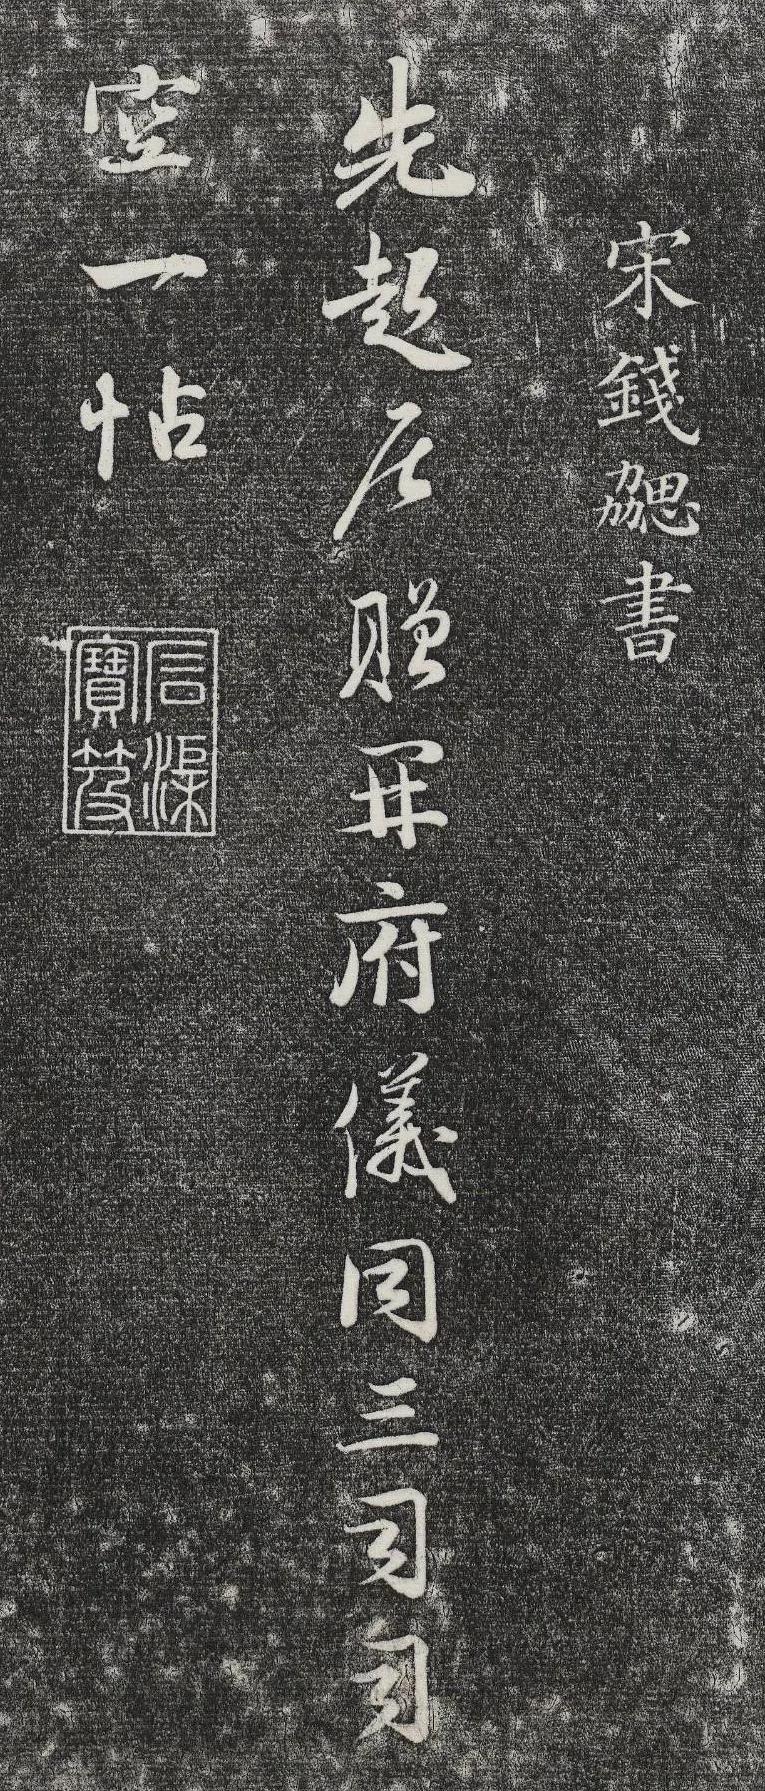 宋錢勰書
先起居贈開府儀同三司司
空一帖
寶笈